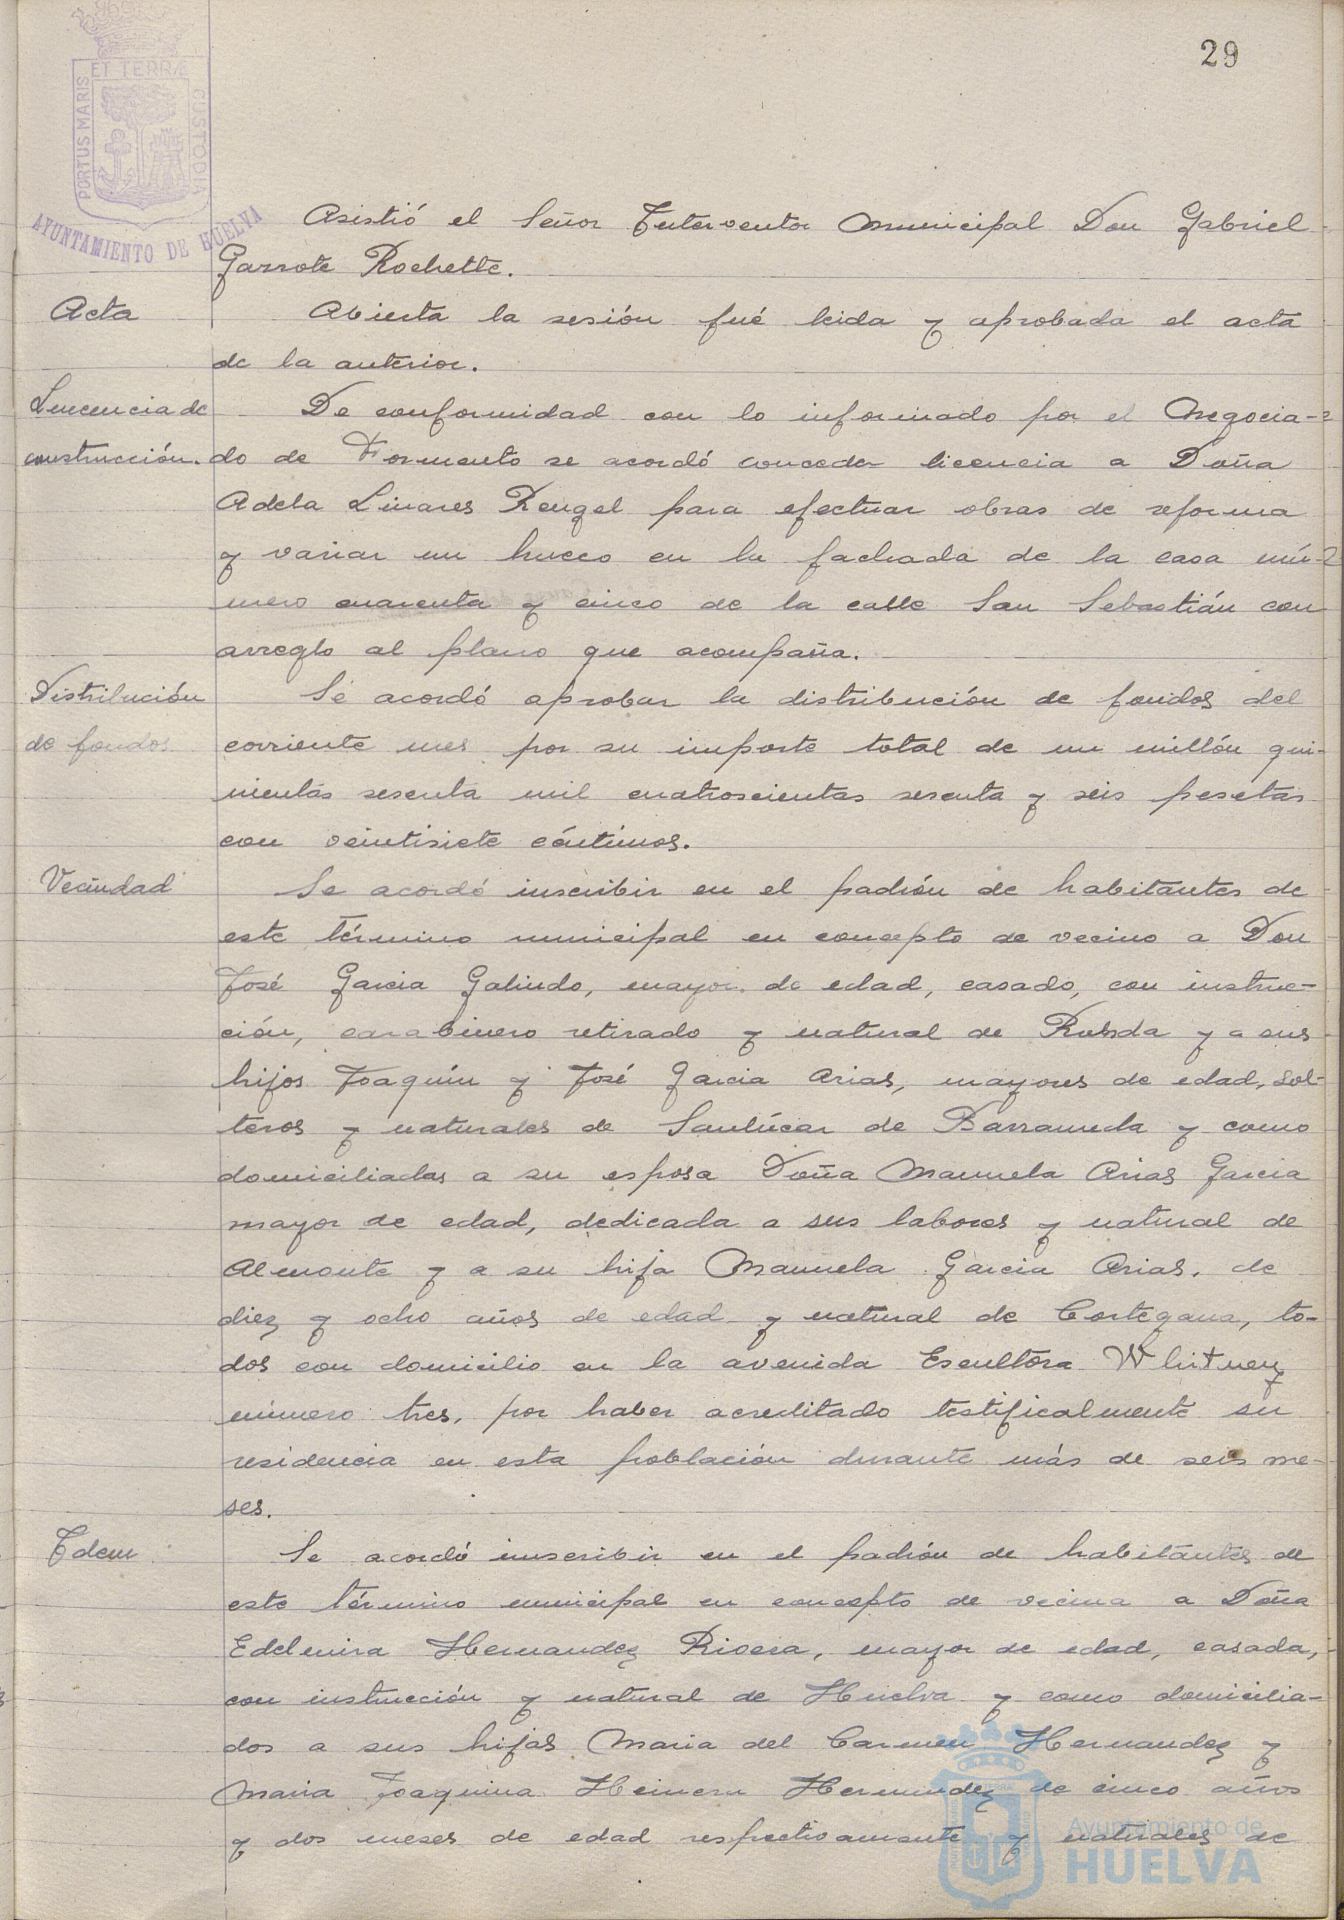 29
PORTUS MARIS ET TERRÆ CUSTODIA
AYUNTAMIENTO DE HUELVA
Asistió el Señor Interventor Municipal Don Gabriel
Garrote Rochette.
Acta
Abierta la sesión fué leida y aprobada el acta
de la anterior.
Lincencia de
construcción.
De conformidad con lo informado por el Negocia-
do de Fomento se acordó conceder licencia a Doña
Adela Linares Rengel para efectuar obras de reforma
y variar un hueco en la fachada de la casa nú-
mero cuarenta y cinco de la calle San Sebastián con
arreglo al plano que acompaña.
Distribución
de fondos
Se acordó aprobar la distribución de fondos del
corriente mes por su importe total de un millón qui-
nientas sesenta mil cuatroscientas sesenta y seis pesetas
con veintisiete céntimos.
Vecindad
Se acordó inscribir en el padrón de habitantes de
este término municipal en concepto de vecino a Don
José Garcia Galindo, mayor de edad, casado, con instruc-
ción, carabinero retirado y natural de Ronda y a sus
hijos Joaquín y José Garcia Arias, mayores de edad, sol-
teros y naturales de Sanlúcar de Barrameda y como
domiciliadas a su esposa Doña Manuela Arias Garcia
mayor de edad, dedicada a sus labores y natural de
Almonte y a su hija Manuela Garcia Arias, de
diez y ocho años de edad y natural de Cortegana, to-
dos con domicilio en la avenida Escultora Whitney
número tres, por haber acreditado testificalmente su
residencia en esta población durante más de seis me-
ses.
Idem
Se acordó inscribir en el padrón de habitantes de
este término municipal en concepto de vecina a Doña
Edelmira Hernandez Rivera, mayor de edad, casada,
con instrucción y natural de Huelva y como domicilia-
dos a sus hijas Maria del Carmen Hernandez y
Maria Joaquina Hernandez de cinco años
y dos meses de edad respectivamente y naturales de
Ayuntamiento de
HUELVA